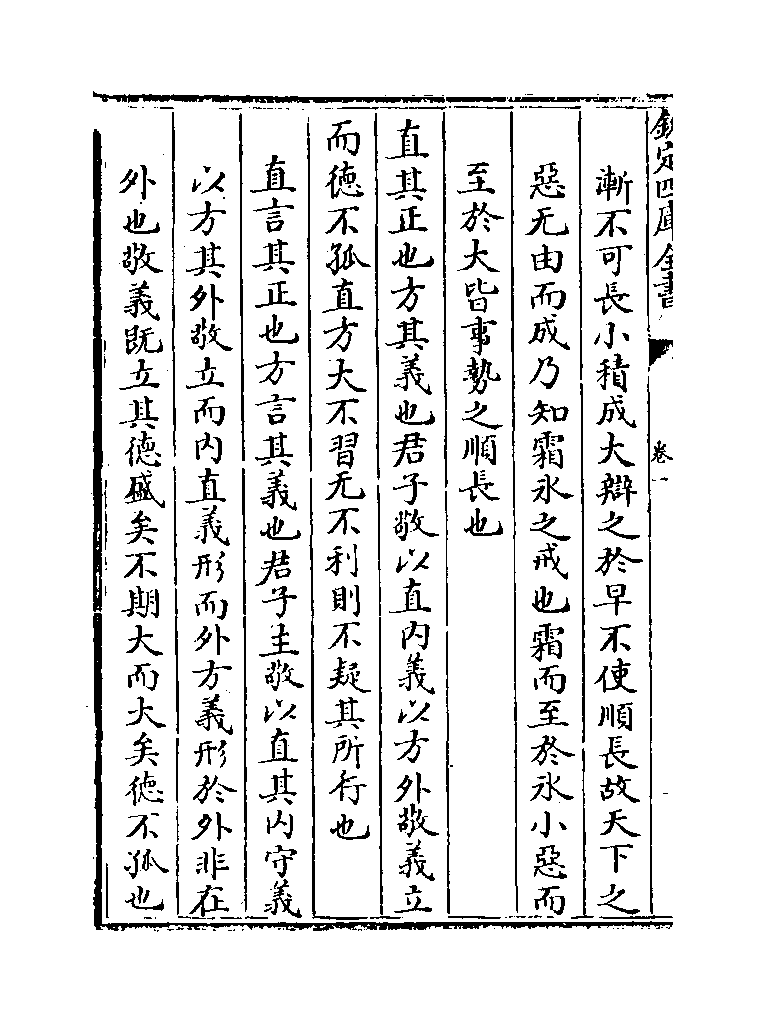 欽定四庫全書
卷一
漸不可長小積成大辯之於早不使順長故天下之
惡无由而成乃知霜氷之戒也霜而至於氷小惡而
至於大皆事勢之順長也
直其正也方其義也君子敬以直内義以方外敬義立
而徳不孤直方大不習无不利則不疑其所行也
直言其正也方言其義也君子主敬以直其内守義
以方其外敬立而内直義形而外方義形於外非在
外也敬義既立其徳盛矣不期大而大矣徳不孤也